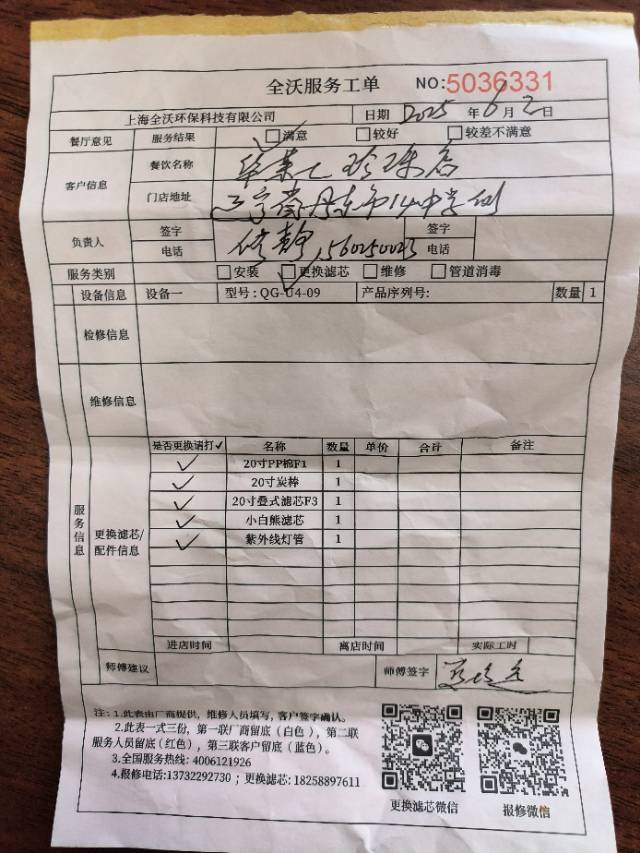 全沃服务工单 NO:5036331
上海全沃环保科技有限公司 日期 2025 年 6 月 2 日
餐厅意见 服务结果 满意 较好 较差不满意
客户信息 餐饮名称 珍珠店
门店地址 辽宁省丹东市14中学侧
负责人 签字 静 签字
电话 电话
服务类别 安装 更换滤芯 维修 管道消毒
设备信息 设备一 型号: QG-U4-09 产品序列号: 数量 1
检修信息
维修信息
服务信息
更换滤芯/配件信息
是否更换请打✓ 名称 数量 单价 合计 备注
✓ 20寸PP棉F1 1
✓ 20寸炭棒 1
✓ 20寸叠式滤芯F3 1
✓ 小白熊滤芯 1
✓ 紫外线灯管 1
进店时间 离店时间 实际工时
师傅建议 师傅签字
注: 1.此表由厂商提供，维修人员填写，客户签字确认。
2.此表一式三份，第一联厂商留底（白色），第二联
服务人员留底（红色），第三联客户留底（蓝色）。
3.全国服务热线: 4006121926
4.报修电话:13732292730；更换滤芯: 18258897611
更换滤芯微信 报修微信